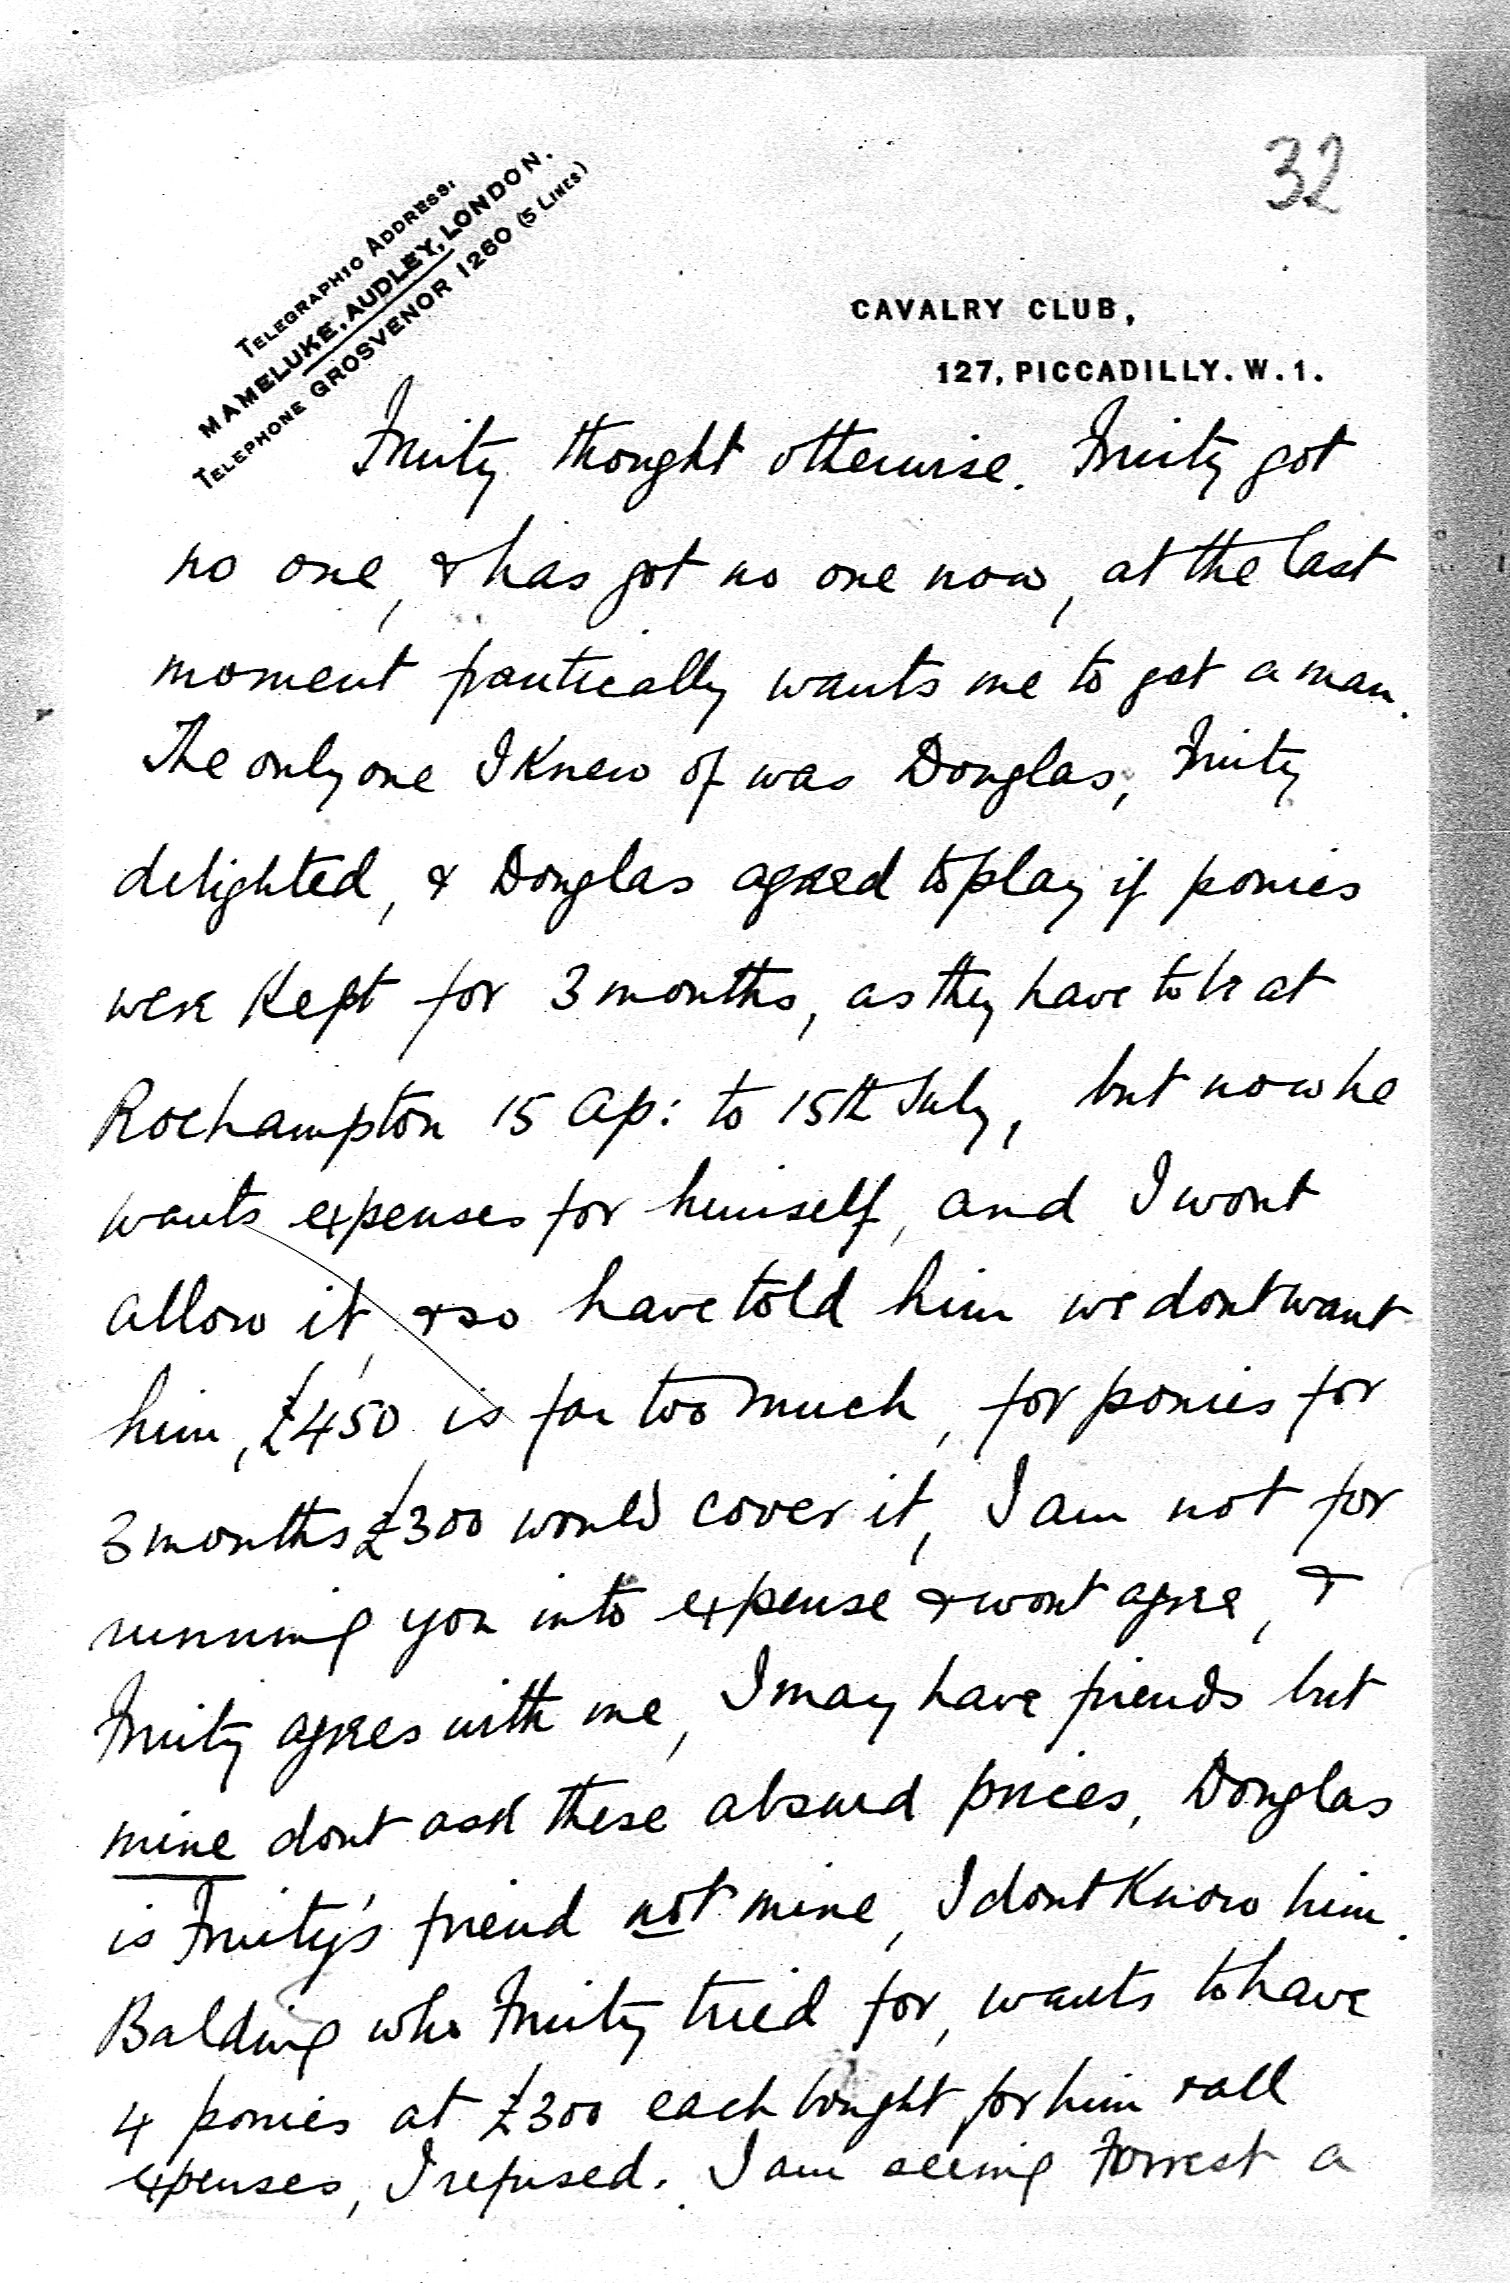 32
TELEGRAPHIC ADDRESS:
MAMELUKE, AUDLEY, LONDON.
TELEPHONE GROSVENOR 1260 (5 LINES)
CAVALRY CLUB,
127, PICCADILLY. W.1.
Fruity thought otherwise. Fruity got
no one, & has got no one now, at the last
moment frantically wants me to get a man.
The only one I knew of was Douglas, Fruity
delighted, & Douglas agreed to play if ponies
were kept for 3 months, as they have to be at
Roehampton 15 Ap: to 15th July, but now he
wants expenses for himself, and I wont
allow it, & so have told him we dont want
him, £450 is far too much, for ponies for
3 months £300 would cover it, I am not for
running you into expense & wont agree, &
Fruity agrees with me, I may have friends but
mine dont ask these absurd prices, Douglas
is Fruity's friend not mine, I dont know him.
Balding who Fruity tried for, wants to have
4 ponies at £300 each bought for him & all
expenses, I refused. I am seeing Forrest a